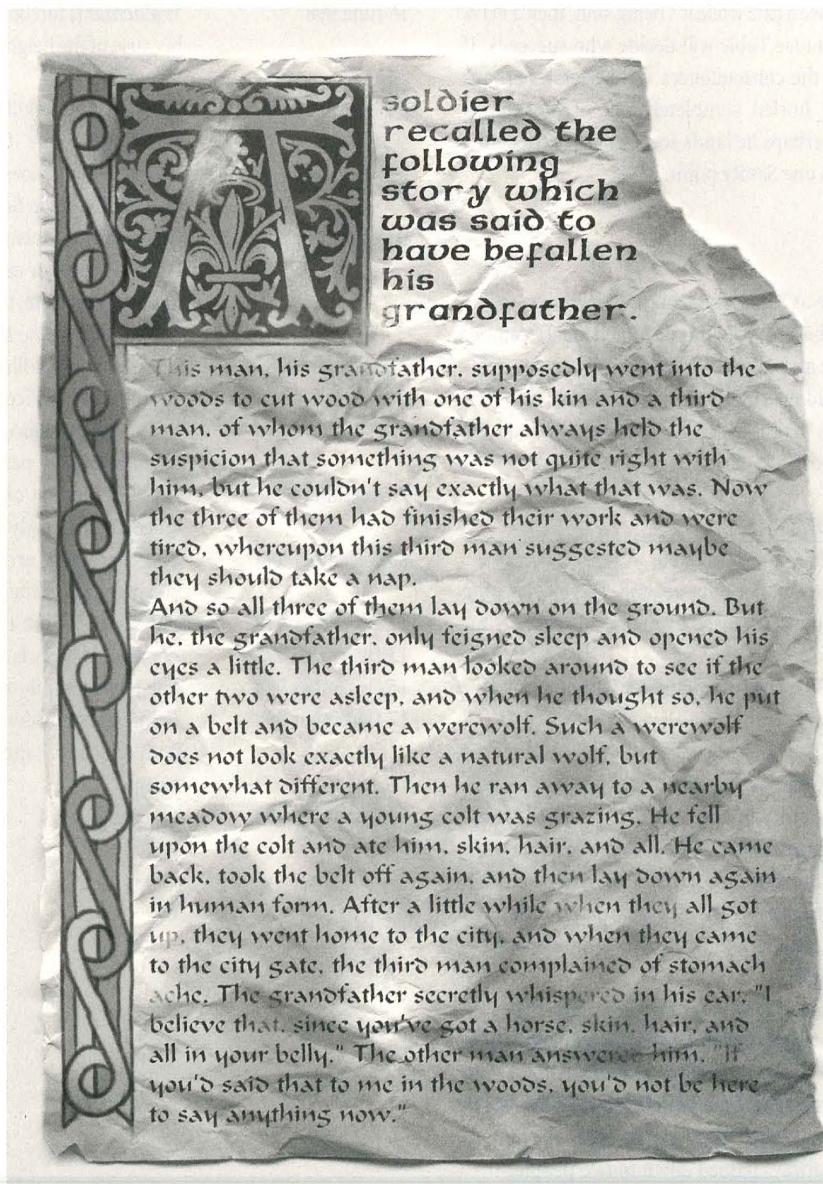 A soldier
recalled the
following
story which
was said to
have befallen
his
grandfather.
This man, his grandfather, supposedly went into the
woods to cut wood with one of his kin and a third
man, of whom the grandfather always held the
suspicion that something was not quite right with
him, but he couldn't say exactly what that was. Now
the three of them had finished their work and were
tired, whereupon this third man suggested maybe
they should take a nap.
And so all three of them lay down on the ground. But
he, the grandfather, only feigned sleep and opened his
eyes a little. The third man looked around to see if the
other two were asleep, and when he thought so, he put
on a belt and became a werewolf. Such a werewolf
does not look exactly like a natural wolf, but
somewhat different. Then he ran away to a nearby
meadow where a young colt was grazing. He fell
upon the colt and ate him, skin, hair, and all. He came
back, took the belt off again, and then lay down again
in human form. After a little while when they all got
up, they went home to the city, and when they came
to the city gate, the third man complained of stomach
ache. The grandfather secretly whispered in his ear, "I
believe that, since you've got a horse, skin, hair, and
all in your belly." The other man answered him, "If
you'd said that to me in the woods, you'd not be here
to say anything now."